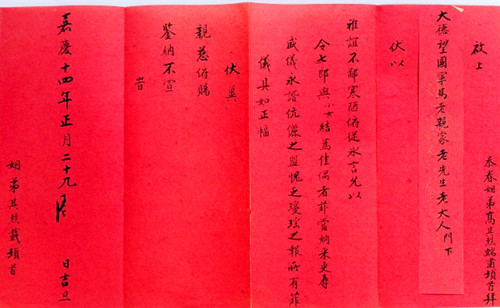 忝眷姻弟高其烈端肅頓首拜
啟上
大德望國寧馬老親家老先生老大人門下
伏以
雅誼不鄙寒陋俯從冰言允以
令七郎與小女結為佳偶者菲當姻末更辱
盛儀永諧伉儷之盟愧乏瓊瑤之報所有菲
儀具如正幅
伏冀
親慈俯賜
鑒納不宣
嘉慶十四年正月二十九 日吉旦
姻弟其烈載頓首